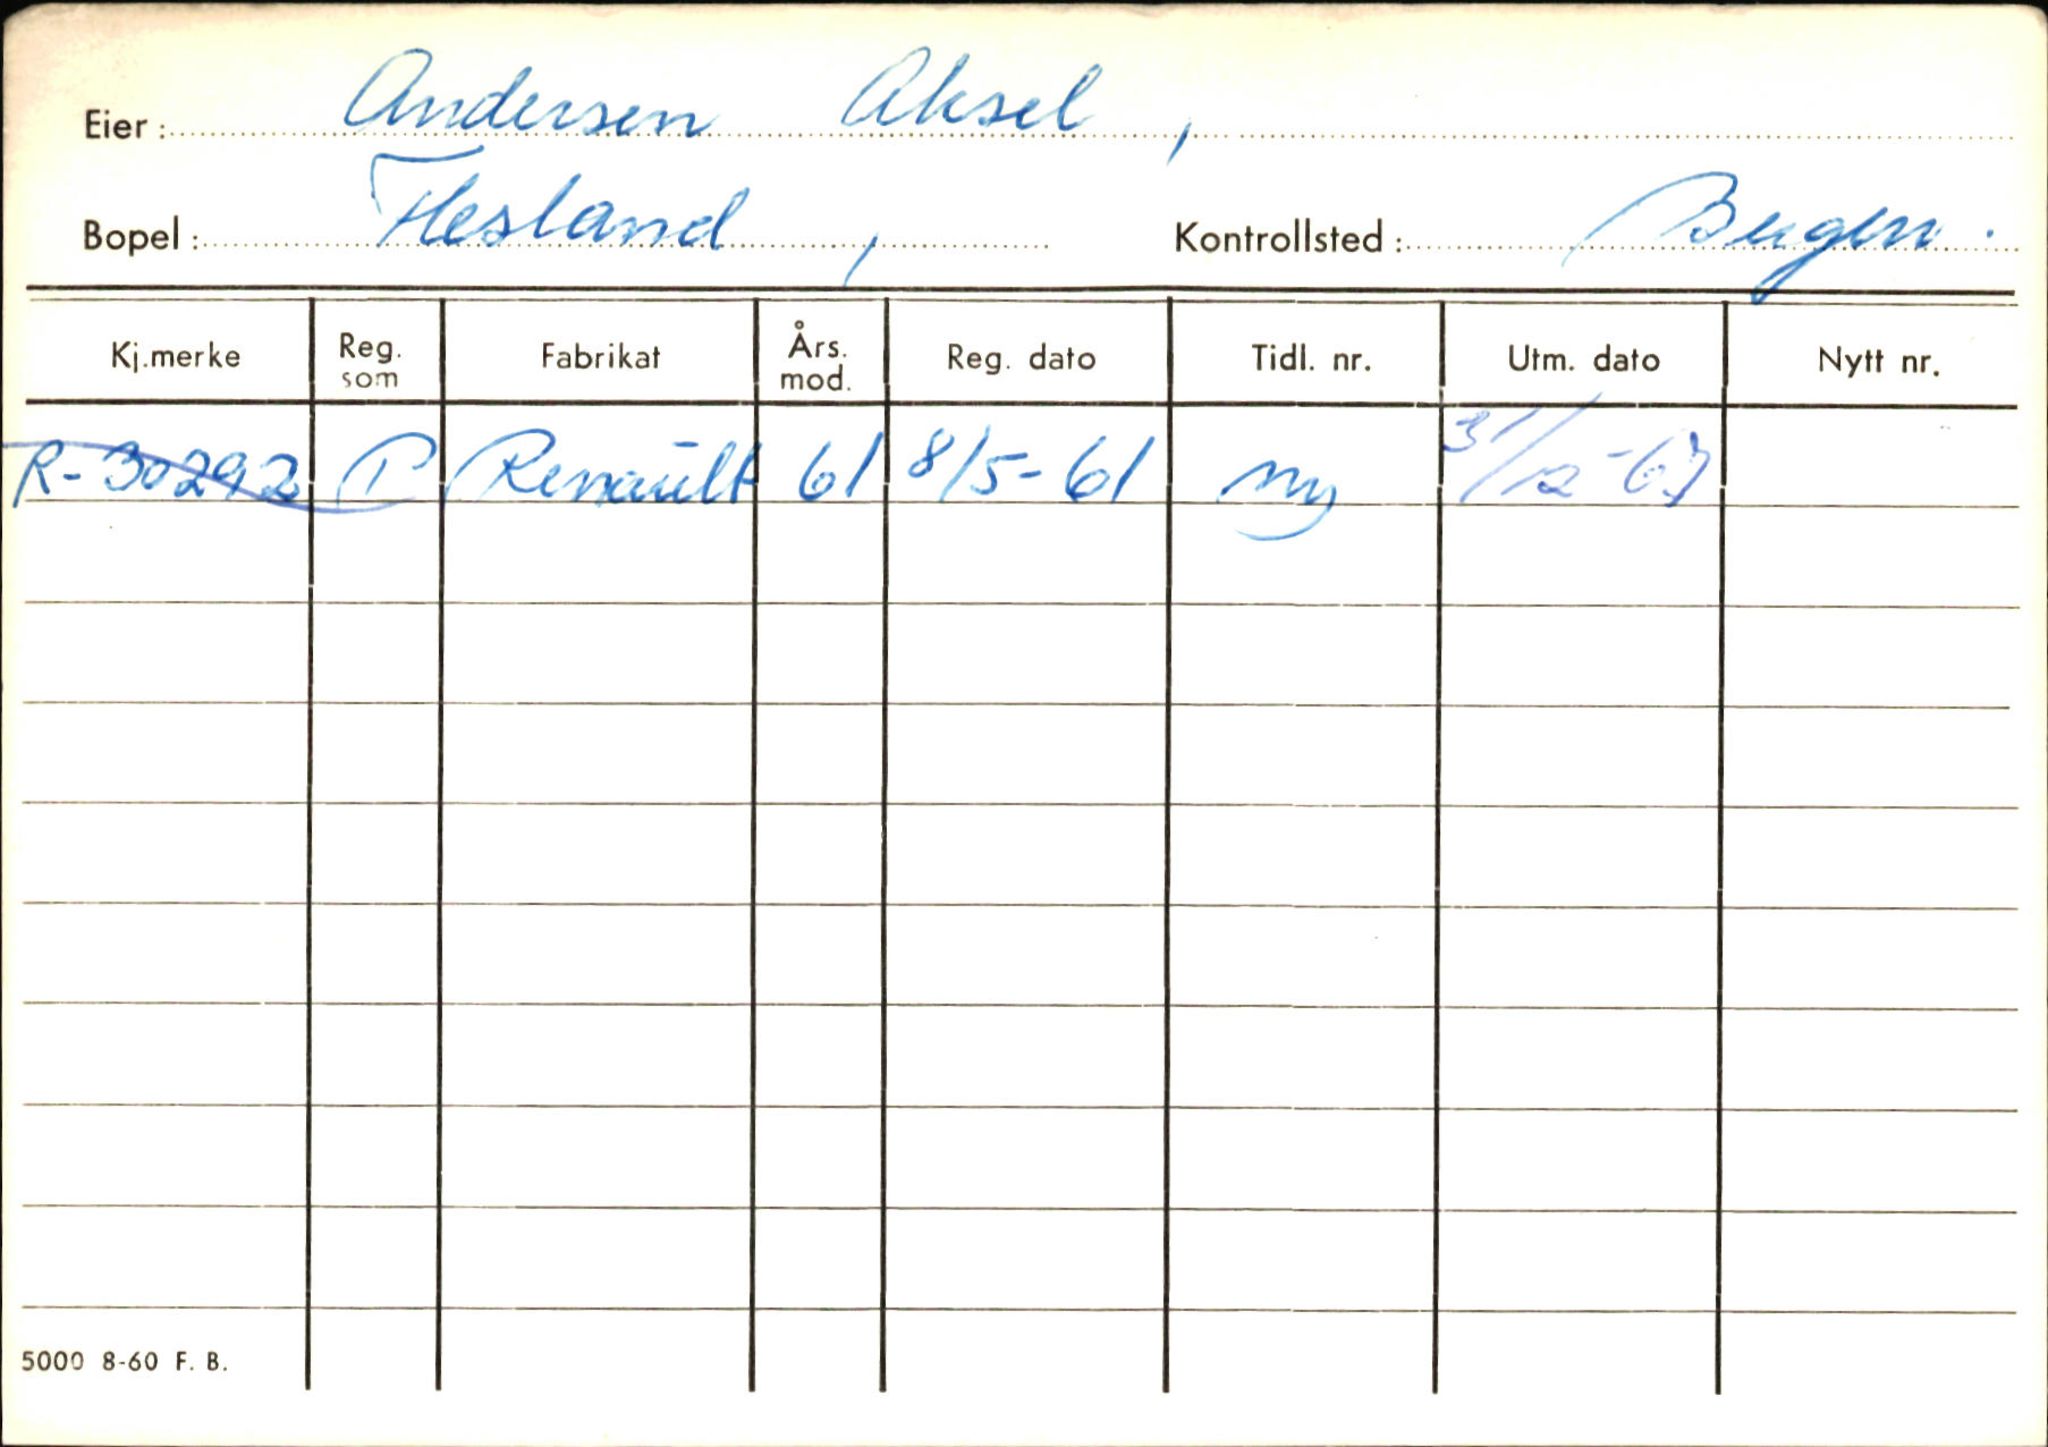 Eier: Andersen Aksel,
Bopel: Flesland, Kontrollsted: Bergen.
Kj.merke Reg. som Fabrikat Års. mod. Reg. dato Tidl. nr. Utm. dato Nytt nr.
R-30292 P Renault 61 8/5-61 ny 31/12-67
5000 8-60 F. B.